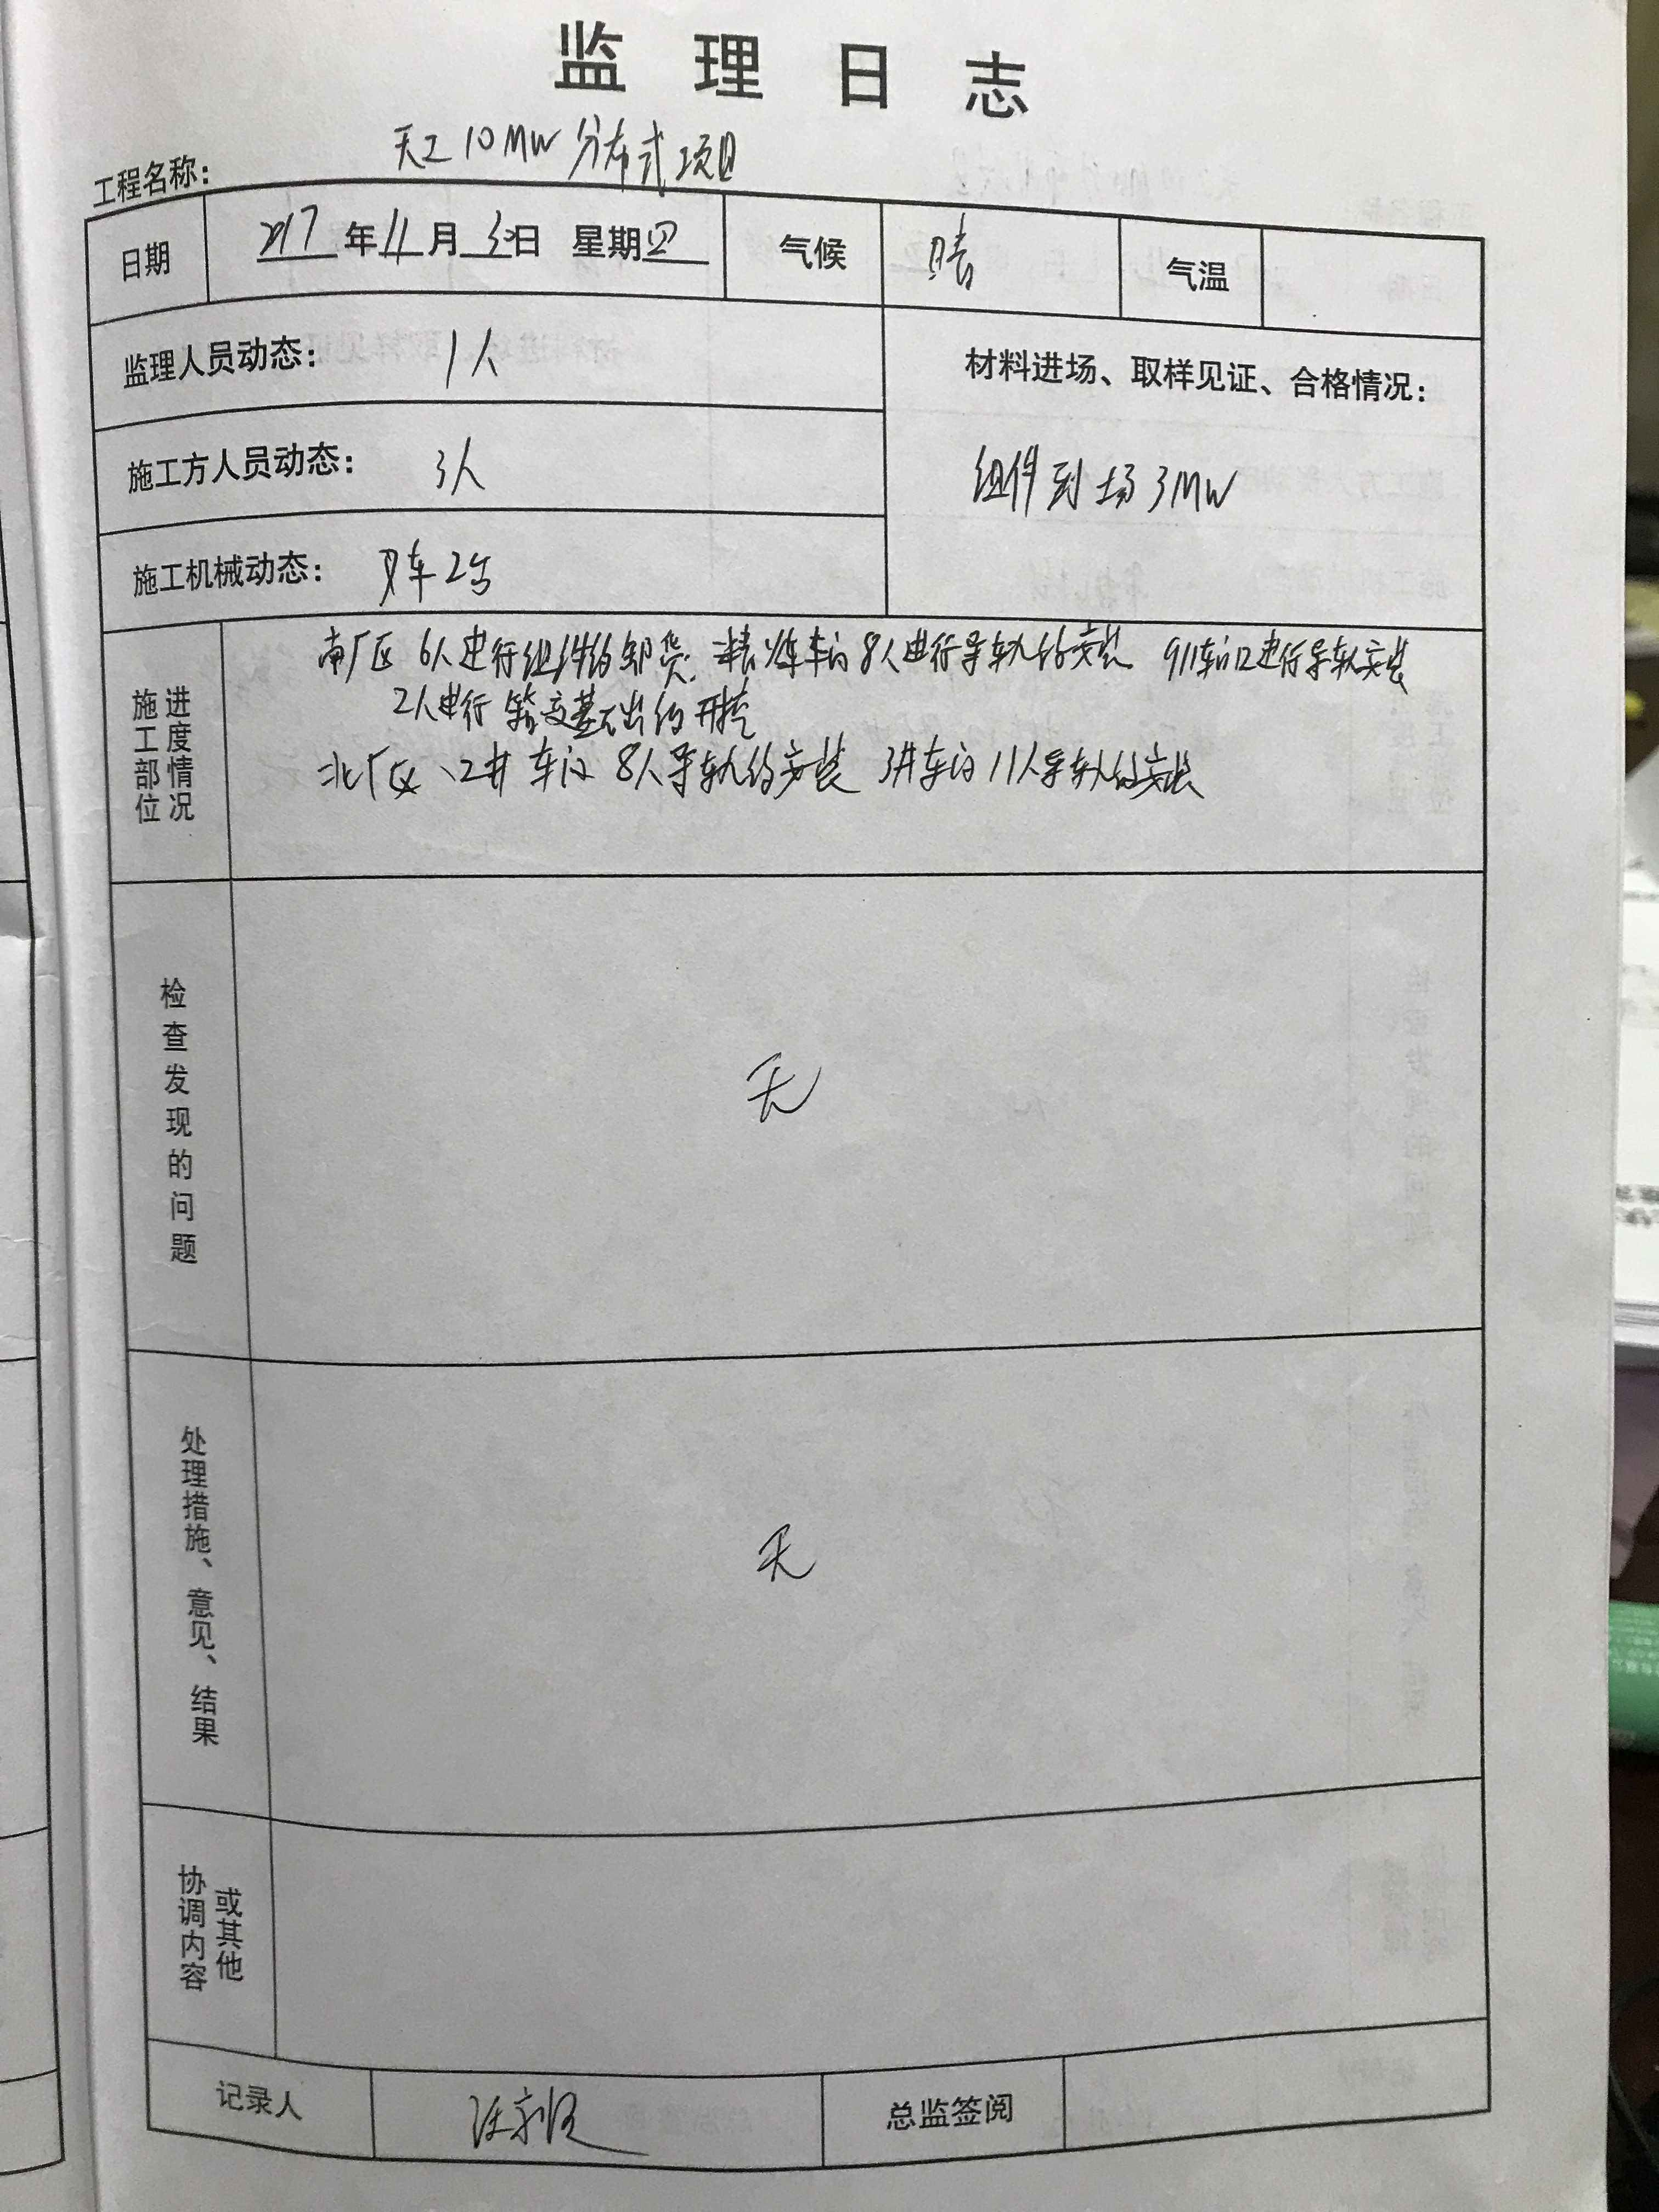 监理日志
工程名称：天工10MW分布式项目
日期 2017年11月30日 星期四 气候 晴 气温
监理人员动态：1人
材料进场、取样见证、合格情况：
施工方人员动态：3人
组件到场3MW
施工机械动态：叉车2台
施工部位进度情况
南厂区 6人进行组件的卸货. 车间8人进行导轨的安装 9/11车间12进行导轨安装
2人进行 基础的开挖
北厂区 12井车间 8人导轨的安装 3井车间11人导轨的安装
检查发现的问题
无
处理措施、意见、结果
无
协调内容或其他
记录人
总监签阅